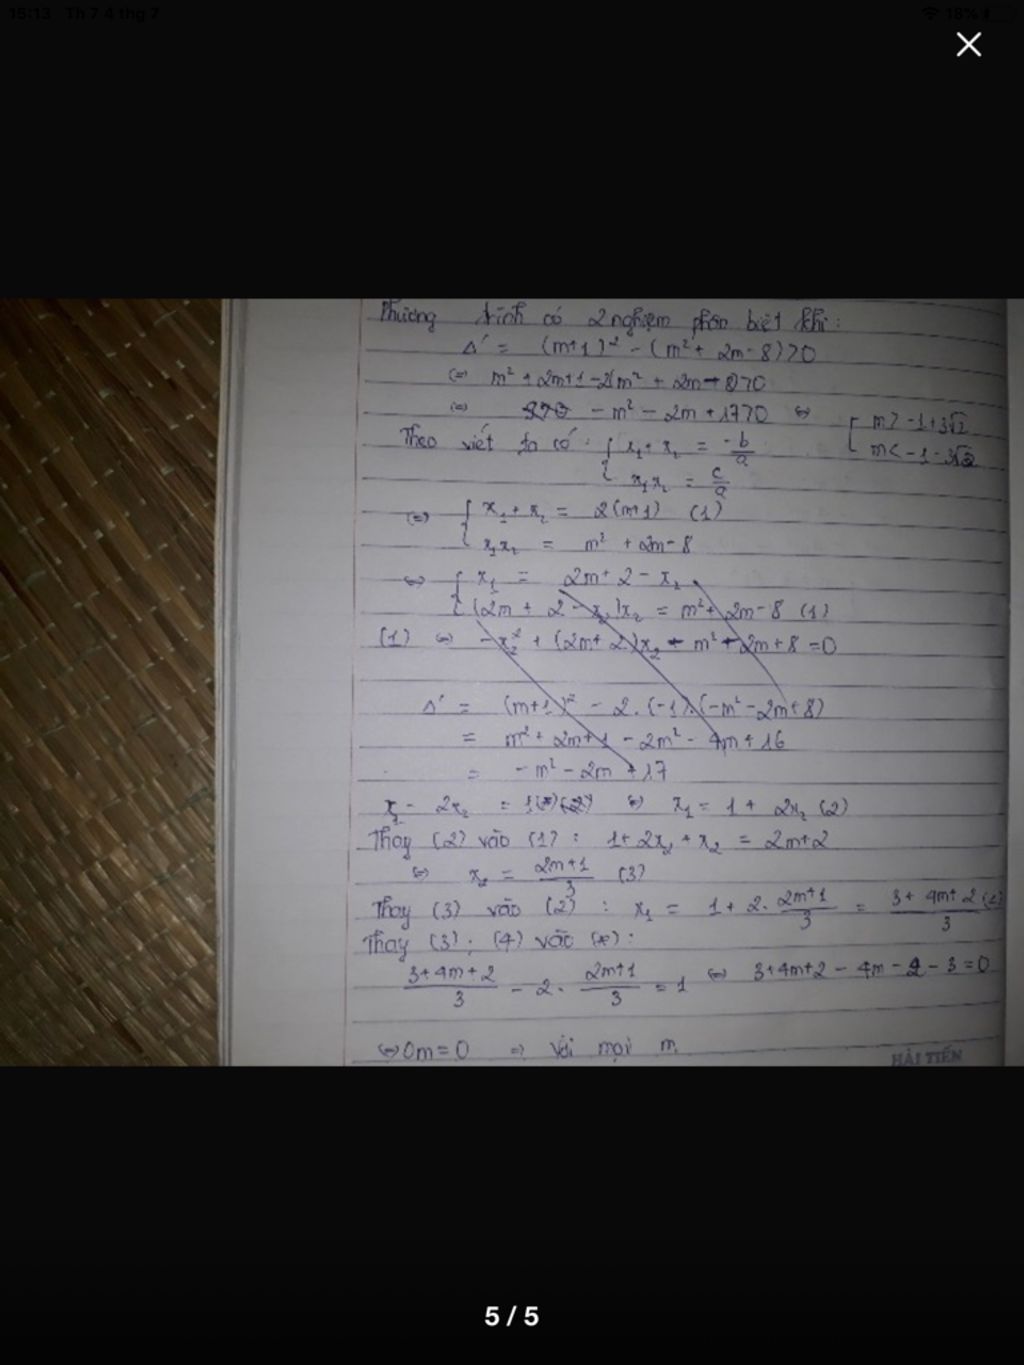 15:13 Th 7 4 thg 7
18%
Phương trình có 2 nghiệm phân biệt khi:
Δ' = (m+1)² - (m² + 2m - 8) > 0
⇔ m² + 2m+1 - 2(m² + 2m - 8 > 0
⇔ - m² - 2m + 17 > 0 ⇔ [ m > -1+3√2
m < -1-3√2
Theo viét ta có: { x₁ + x₂ = -b/a
x₁x₂ = c/a
⇔ { x₁ + x₂ = 2(m+1) (1)
x₁x₂ = m² + 2m - 8
⇔ { x₁ = 2m + 2 - x₂
(2m + 2 - x₂)x₂ = m² + 2m - 8 (1)
(1) ⇔ -x₂² + (2m+2)x₂ - m² - 2m + 8 = 0
Δ' = (m+1)² - 2.(-1).(-m² - 2m + 8)
= m² + 2m + 1 - 2m² - 4m + 16
= - m² - 2m + 17
x₁ - 2x₂ = 1 (*) ⇔ x₁ = 1 + 2x₂ (2)
Thay (2) vào (1) : 1 + 2x₂ + x₂ = 2m+2
⇔ x₂ = (2m+1)/3 (3)
Thay (3) vào (2) : x₁ = 1 + 2 . (2m+1)/3 = (3 + 4m + 2)/3 (4)
Thay (3) ; (4) vào (*) :
(3+4m+2)/3 - 2 . (2m+1)/3 = 1 ⇔ 3+4m+2 - 4m - 2 - 3 = 0
⇔ 0m = 0 ⇒ Với mọi m
HẢI TIẾN
5 / 5